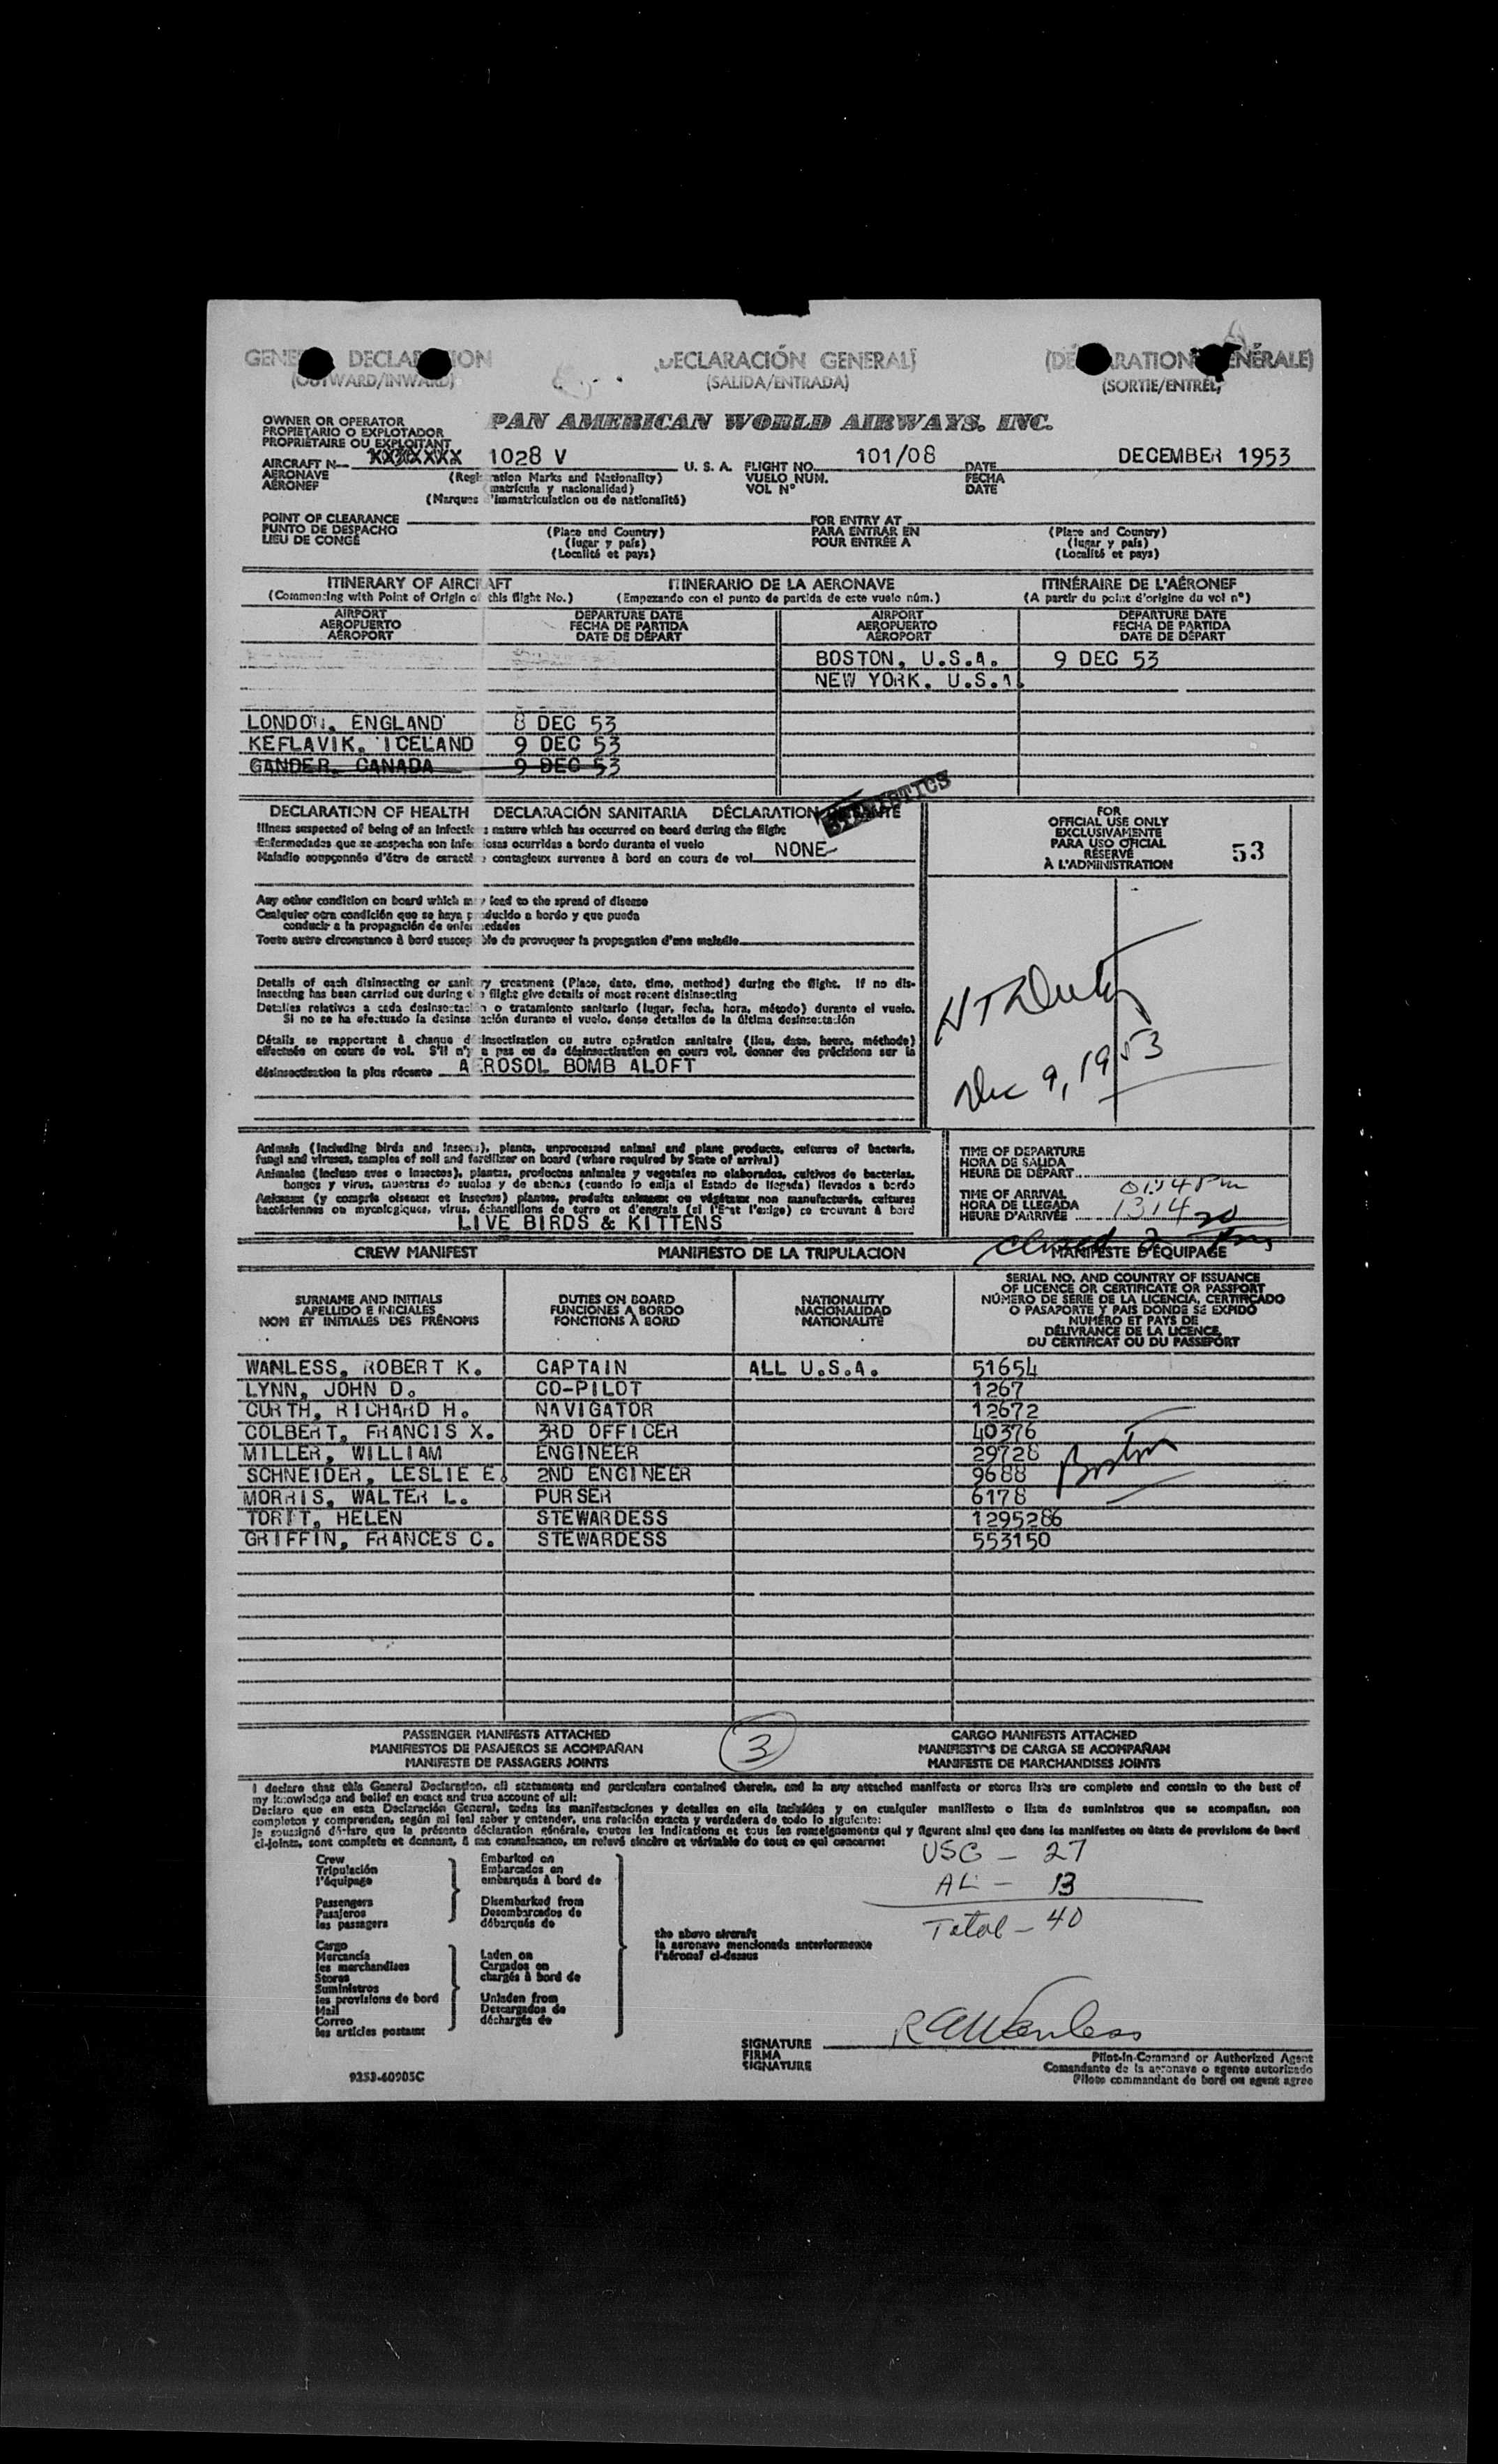 DECLARACIÓN GENERAL
(OUTWARD/INWARD) (SALIDA/ENTRADA) (SORTIE/ENTRÉE)
OWNER OR OPERATOR
PROPIETARIO O EXPLOTADOR
PROPRIÉTAIRE OU EXPLOITANT
PAN AMERICAN WORLD AIRWAYS, INC.
AIRCRAFT N— XXXXXXX 1028 V U. S. A. FLIGHT NO. 101/08 DATE DECEMBER 1953
AERONAVE (Registration Marks and Nationality) VUELO NUM. FECHA
AÉRONEF (matrícula y nacionalidad) VOL N° DATE
(Marques d'immatriculation ou de nationalité)
POINT OF CLEARANCE FOR ENTRY AT
PUNTO DE DESPACHO (Place and Country) PARA ENTRAR EN (Place and Country)
LIEU DE CONGÉ (lugar y país) POUR ENTRÉE A (lugar y país)
(Localité et pays) (Localité et pays)
ITINERARY OF AIRCRAFT ITINERARIO DE LA AERONAVE ITINÉRAIRE DE L'AÉRONEF
(Commencing with Point of Origin of this flight No.) (Empezando con el punto de partida de este vuelo núm.) (A partir du point d'origine du vol n°)
AIRPORT DEPARTURE DATE AIRPORT DEPARTURE DATE
AEROPUERTO FECHA DE PARTIDA AEROPUERTO FECHA DE PARTIDA
AÉROPORT DATE DE DÉPART AÉROPORT DATE DE DÉPART
BOSTON, U.S.A. 9 DEC 53
NEW YORK, U.S.A.
LONDON, ENGLAND 8 DEC 53
KEFLAVIK, ICELAND 9 DEC 53
GANDER, CANADA 9 DEC 53
DECLARATION OF HEALTH DECLARACIÓN SANITARIA DÉCLARATION
Illness suspected of being of an infectious nature which has occurred on board during the flight
Enfermedades que se sospecha son infecciosas ocurridas a bordo durante el vuelo
Maladie soupçonnée d'être de caractère contagieux survenue à bord en cours de vol NONE
FOR
OFFICIAL USE ONLY
EXCLUSIVAMENTE
PARA USO OFICIAL
RÉSERVÉ
À L'ADMINISTRATION
53
Any other condition on board which may lead to the spread of disease
Cualquier otra condición que se haya producido a bordo y que pueda
conducir a la propagación de enfermedades
Toute autre circonstance à bord susceptible de provoquer la propagation d'une maladie
Details of each disinsecting or sanitary treatment (Place, date, time, method) during the flight. If no dis-
insecting has been carried out during the flight give details of most recent disinsecting
Detalles relativos a cada desinsectación o tratamiento sanitario (lugar, fecha, hora, método) durante el vuelo.
Si no se ha efectuado la desinsectación durante el vuelo, dense detalles de la última desinsectación
Détails se rapportant à chaque désinsectisation ou autre opération sanitaire (lieu, date, heure, méthode)
effectuée en cours de vol. S'il n'y a pas eu de désinsectisation en cours vol, donner des précisions sur la
désinsectisation la plus récente AEROSOL BOMB ALOFT
Dec 9, 1953
Animals (including birds and insects), plants, unprocessed animal and plant products, cultures of bacteria,
fungi and viruses, samples of soil and fertilizer on board (where required by State of arrival)
Animales (incluso aves e insectos), plantas, productos animales y vegetales no elaborados, cultivos de bacterias,
hongos y virus, muestras de suelos y de abonos (cuando lo exija el Estado de llegada) llevados a bordo
Animaux (y compris oiseaux et insectes) plantes, produits animaux ou végétaux non manufacturés, cultures
bactériennes ou mycologiques, virus, échantillons de terre et d'engrais (si l'Etat l'exige) se trouvant à bord
LIVE BIRDS & KITTENS
TIME OF DEPARTURE
HORA DE SALIDA
HEURE DE DÉPART
TIME OF ARRIVAL
HORA DE LLEGADA
HEURE D'ARRIVÉE
CREW MANIFEST MANIFIESTO DE LA TRIPULACION MANIFESTE D'ÉQUIPAGE
SURNAME AND INITIALS DUTIES ON BOARD NATIONALITY SERIAL NO. AND COUNTRY OF ISSUANCE
APELLIDO E INICIALES FUNCIONES A BORDO NACIONALIDAD OF LICENCE OR CERTIFICATE OR PASSPORT
NOM ET INITIALES DES PRÉNOMS FONCTIONS À BORD NATIONALITÉ NÚMERO DE SERIE DE LA LICENCIA, CERTIFICADO
O PASAPORTE Y PAIS DONDE SE EXPIDÓ
NUMÉRO ET PAYS DE
DÉLIVRANCE DE LA LICENCE,
DU CERTIFICAT OU DU PASSEPORT
WANLESS, ROBERT K. CAPTAIN ALL U.S.A. 51654
LYNN, JOHN D. CO-PILOT 1267
CURTH, RICHARD H. NAVIGATOR 12672
COLBERT, FRANCIS X. 3RD OFFICER 40376
MILLER, WILLIAM ENGINEER 29728
SCHNEIDER, LESLIE E. 2ND ENGINEER 9688
Boston
MORRIS, WALTER L. PURSER 6178
TORIT, HELEN STEWARDESS 1295286
GRIFFIN, FRANCES C. STEWARDESS 553150
PASSENGER MANIFESTS ATTACHED 3 CARGO MANIFESTS ATTACHED
MANIFIESTOS DE PASAJEROS SE ACOMPAÑAN MANIFIESTOS DE CARGA SE ACOMPAÑAN
MANIFESTE DE PASSAGERS JOINTS MANIFESTE DE MARCHANDISES JOINTS
I declare that this General Declaration, all statements and particulars contained therein, and in any attached manifests or stores lists are complete and contain to the best of
my knowledge and belief an exact and true account of all:
Declaro que en esta Declaración General, todas las manifestaciones y detalles en ella incluídos y en cualquier manifiesto o lista de suministros que se acompañan, son
completos y comprenden, según mi leal saber y entender, una relación exacta y verdadera de todo lo siguiente:
Je soussigné déclare que la présente déclaration générale, toutes les indications et tous les renseignements qui y figurent ainsi que dans les manifestes ou états de provisions de bord
ci-joints, sont complets et donnent, à ma connaissance, un relevé sincère et véritable de tout ce qui concerne:
USC - 27
AL - 13
Total - 40
Crew Embarked on
Tripulación Embarcados en
l'équipage embarqués à bord de
Passengers Disembarked from
Pasajeros Desembarcados de
les passagers débarqués de
the above aircraft
la aeronave mencionada anteriormente
l'aéronef ci-dessus
Cargo
Mercancía Laden on
les marchandises Cargados en
Stores chargés à bord de
Suministros
les provisions de bord Unladen from
Mail Descargados de
Correo déchargés de
les articles postaux
SIGNATURE RAWanless
FIRMA
SIGNATURE
Pilot-in-Command or Authorized Agent
Comandante de la aeronave o agente autorizado
Pilote commandant de bord ou agent agréé
9353-60905C